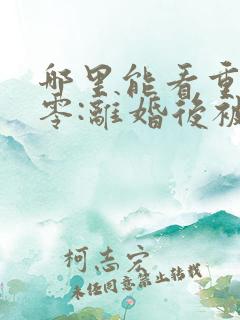 哪里能看重
零:離婚後被
柯志宏
未经同意禁止转载